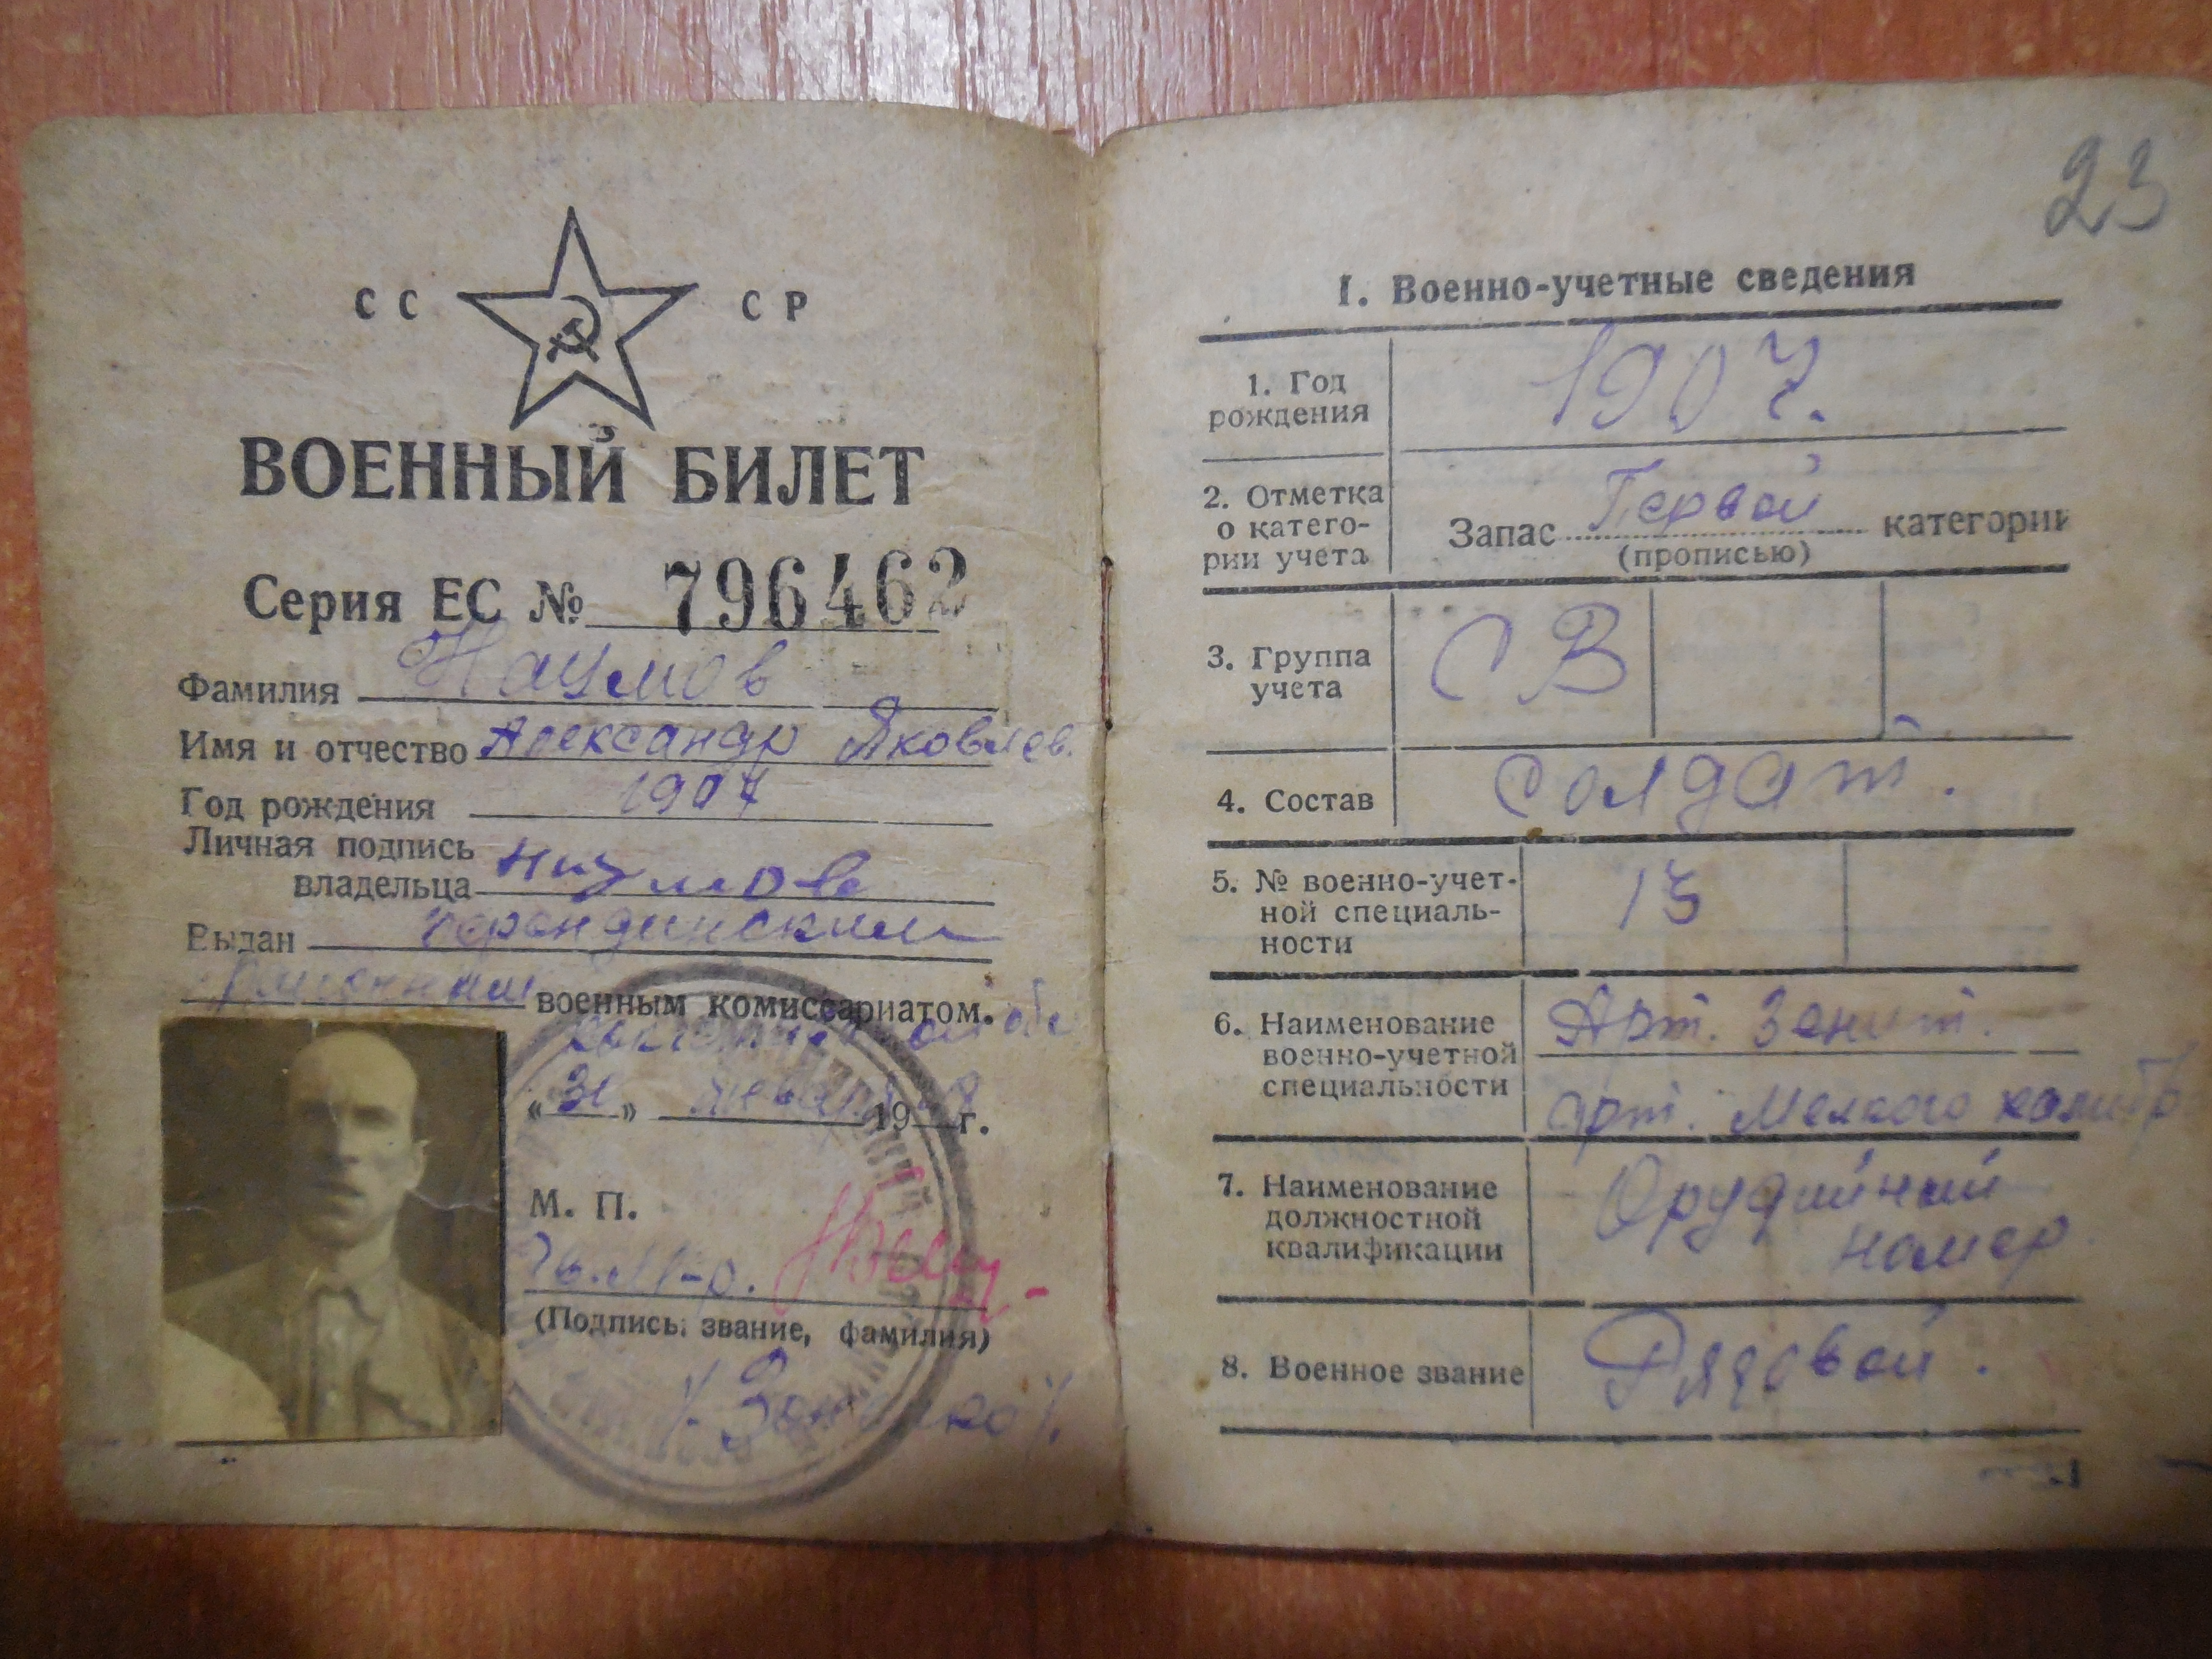 СС СР
ВОЕННЫЙ БИЛЕТ
Серия ЕС № 796462
Фамилия Наумов
Имя и отчество Александр Яковлев.
Год рождения 1907
Личная подпись
владельца Наумов
Выдан
военным комиссариатом.
«31» января 19 г.
М. П.
(Подпись, звание, фамилия)
23
I. Военно-учетные сведения
1. Год
рождения
1907.
2. Отметка
о катего-
рии учета
Запас Первой категории
(прописью)
3. Группа
учета
СВ
4. Состав
солдат.
5. № военно-учет-
ной специаль-
ности
13
6. Наименование
военно-учетной
специальности
Арт. Зенит.
арт. Мелкого калибр
7. Наименование
должностной
квалификации
Орудийный
номер
8. Военное звание
Рядовой.